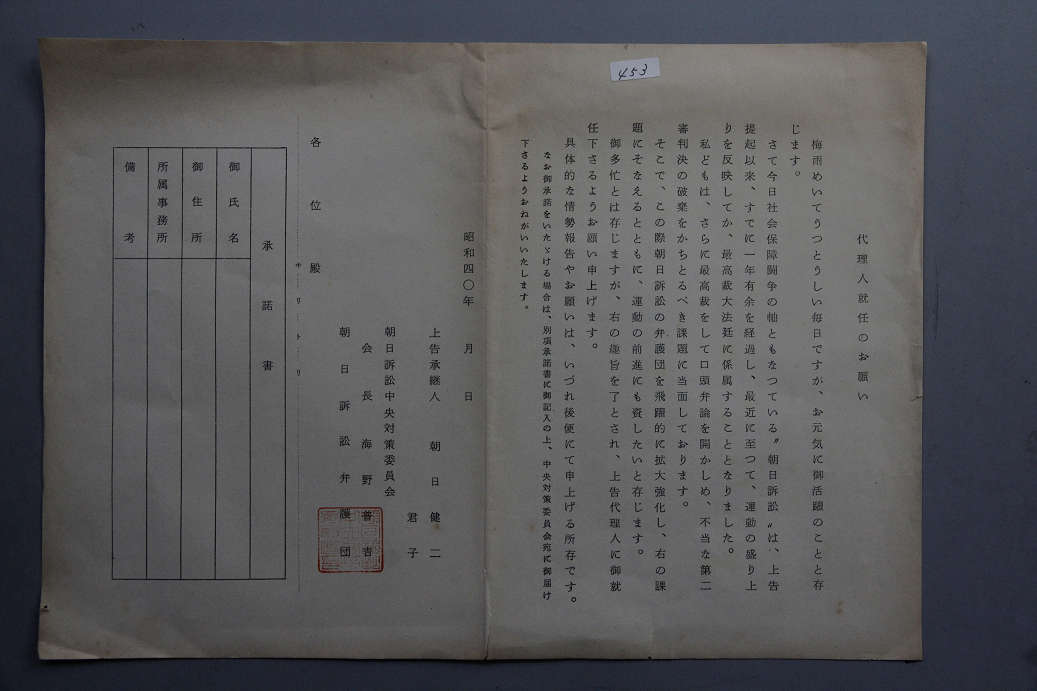 453
代理人就任のお願い
梅雨めいてうつとうしい毎日ですが、お元気に御活躍のことと存
じます。
さて今日社会保障闘争の軸ともなつている〝朝日訴訟〟は、上告
提起以来、すでに一年有余を経過し、最近に至つて、運動の盛り上
りを反映してか、最高裁大法廷に係属することとなりました。
私どもは、さらに最高裁をして口頭弁論を開かしめ、不当な第二
審判決の破棄をかちとるべき課題に当面しております。
そこで、この際朝日訴訟の弁護団を飛躍的に拡大強化し、右の課
題にそなえるとともに、運動の前進にも資したいと存じます。
御多忙とは存じますが、右の趣旨を了とされ、上告代理人に御就
任下さるようお願い申上げます。
具体的な情勢報告やお願いは、いづれ後便にて申上げる所存です。
なお御承諾をいたゞける場合は、別項承諾書に御記入の上、中央対策委員会宛に御届け
下さるようおねがいいたします。
昭和四〇年　月　日
上告承継人　朝日健二
君子
朝日訴訟中央対策委員会
会長　海野普吉
朝日訴訟弁護団
各位殿
承諾書
御氏名
御住所
所属事務所
備考